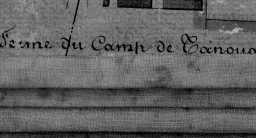 Ferme du Camp de Tanoua